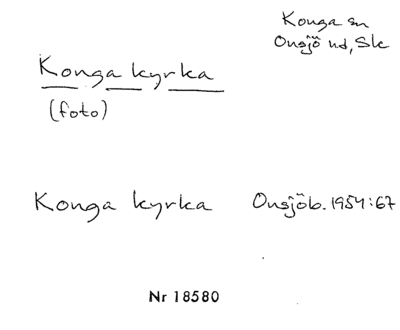 Konga sn
Onsjö hd, Sk
Konga kyrka
(foto)
Konga kyrka Onsjöb. 1954:67
Nr 18580